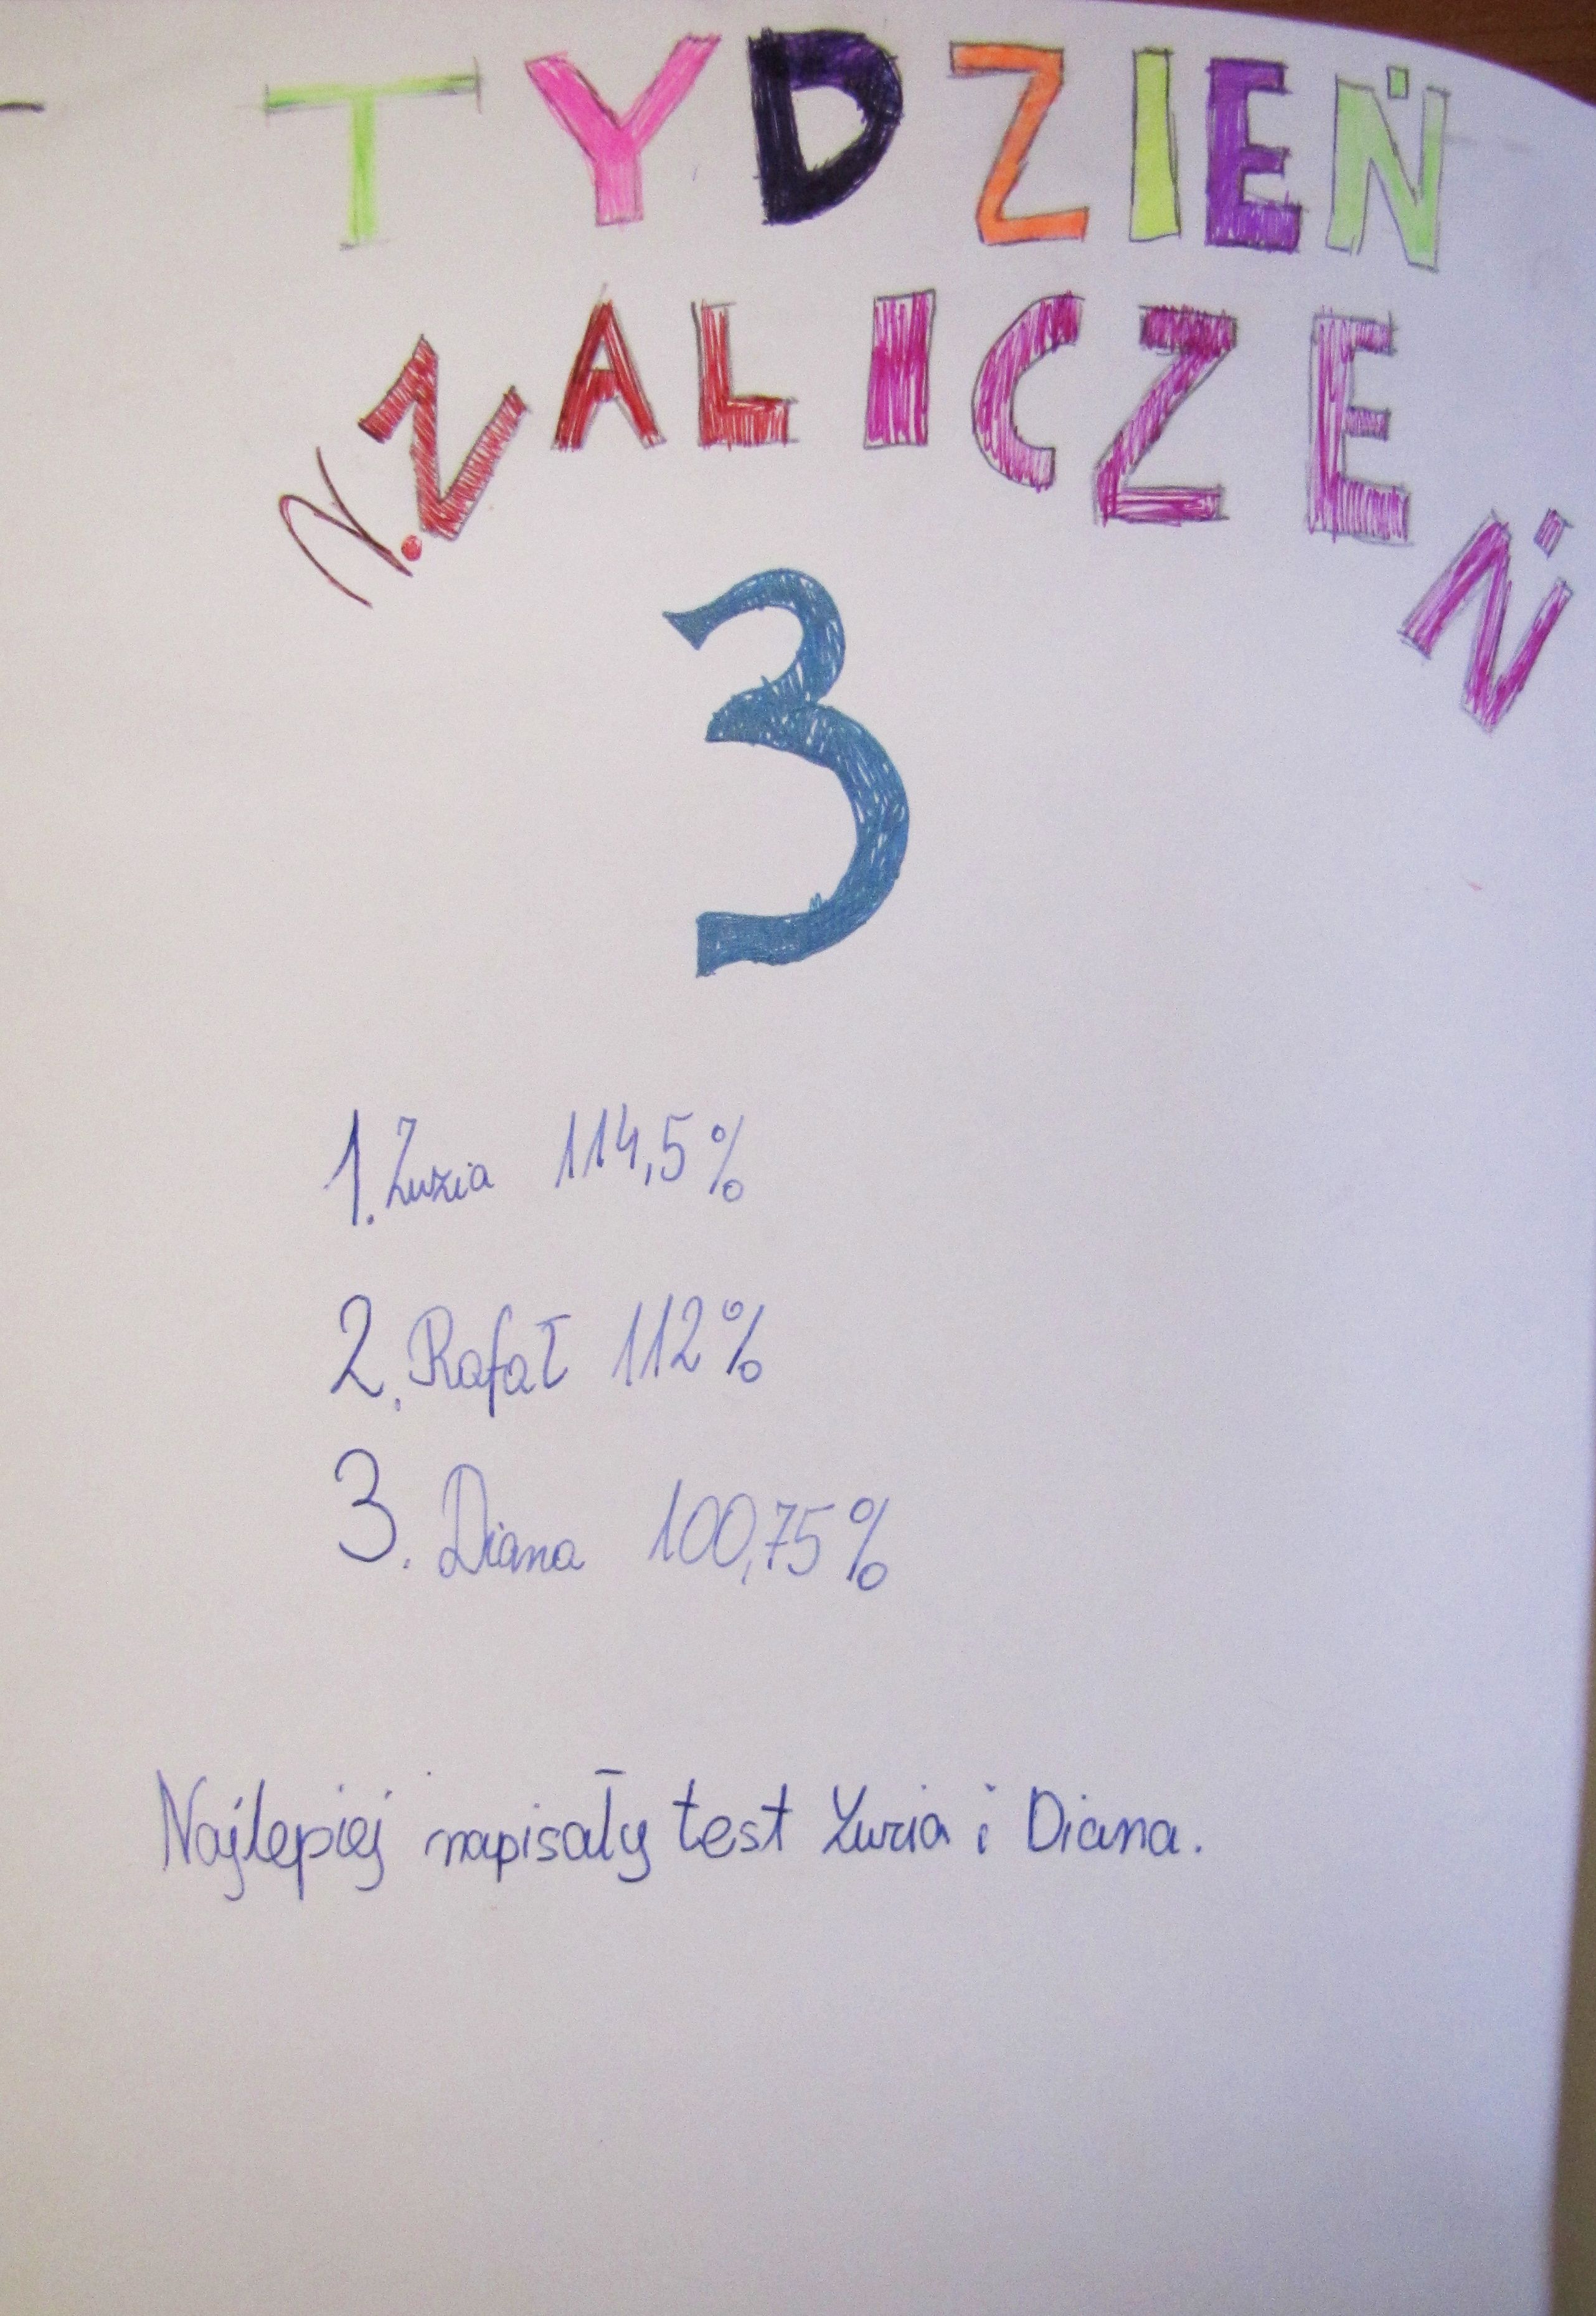 TYDZIEŃ
ZALICZEŃ
3
1. Zuzia 114,5%
2. Rafał 112%
3. Diana 100,75%
Najlepiej napisały test Zuzia i Diana.